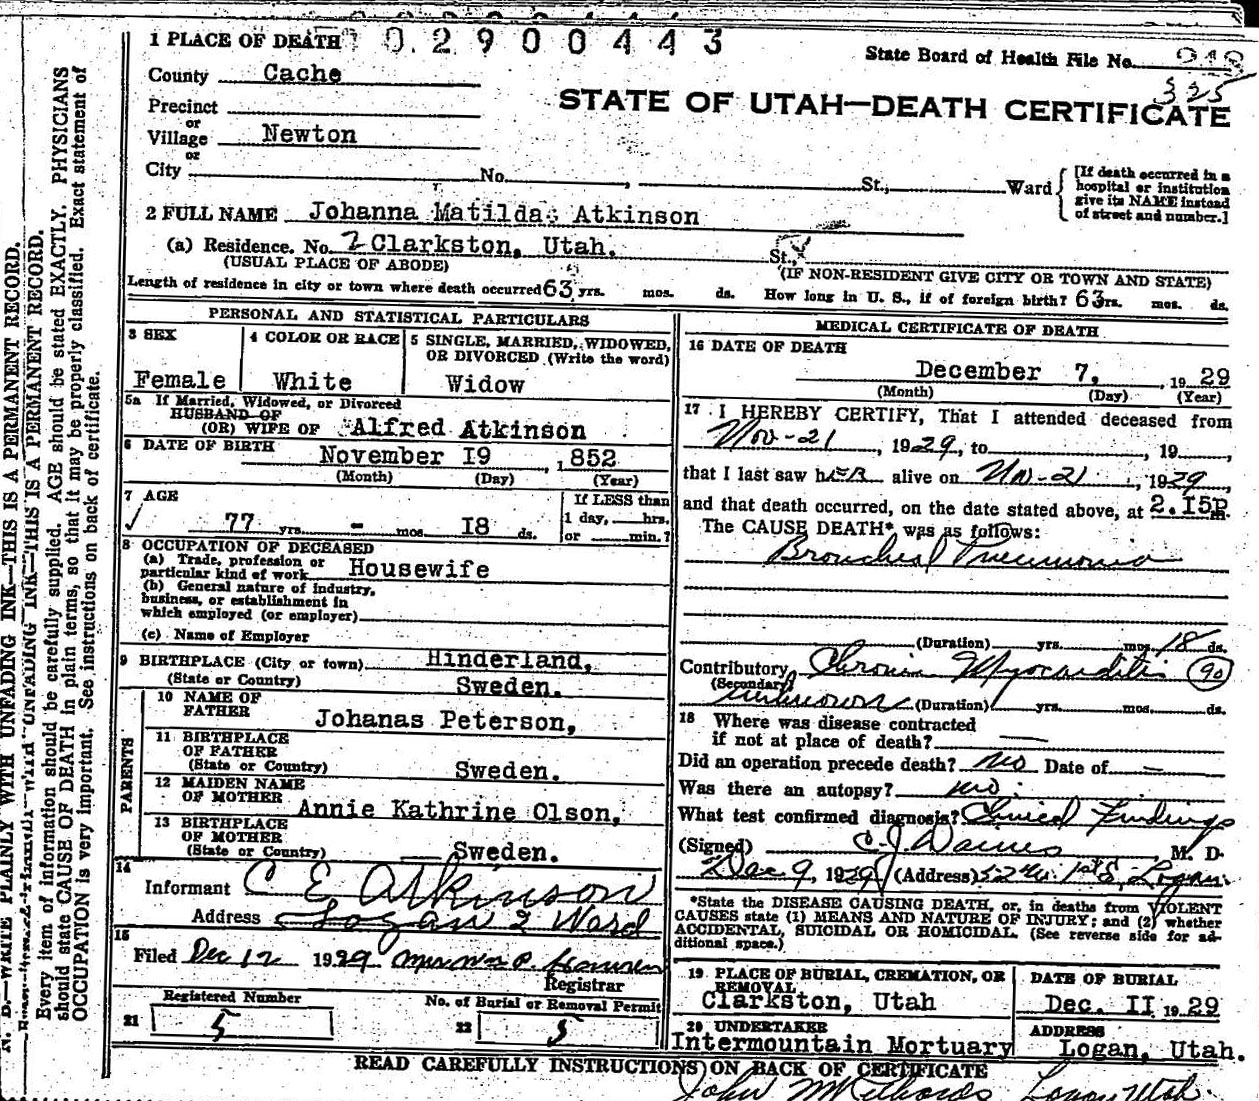 1 PLACE OF DEATH 0.2900443
State Board of Health File No. 
County Cache
325
STATE OF UTAH—DEATH CERTIFICATE
Precinct
or
Village Newton
or
City No. , St., Ward
[If death occurred in a hospital or institution give its NAME instead of street and number.]
2 FULL NAME Johanna Matilda Atkinson
(a) Residence. No. 2 Clarkston, Utah. St.,
(USUAL PLACE OF ABODE) (IF NON-RESIDENT GIVE CITY OR TOWN AND STATE)
Length of residence in city or town where death occurred 63 yrs. mos. ds. How long in U. S., if of foreign birth? 63 rs. mos. ds.
PERSONAL AND STATISTICAL PARTICULARS
3 SEX
Female
4 COLOR OR RACE
White
5 SINGLE, MARRIED, WIDOWED,
OR DIVORCED (Write the word)
Widow
5a If Married, Widowed, or Divorced
HUSBAND OF
(OR) WIFE OF Alfred Atkinson
6 DATE OF BIRTH November I9 , 1852
(Month) (Day) (Year)
7 AGE
77 yrs. - mos. I8 ds.
If LESS than
1 day, hrs.
or min.?
8 OCCUPATION OF DECEASED
(a) Trade, profession or
particular kind of work Housewife
(b) General nature of industry,
business, or establishment in
which employed (or employer)
(c) Name of Employer
9 BIRTHPLACE (City or town) Hinderland,
(State or Country) Sweden.
PARENTS
10 NAME OF
FATHER Johanas Peterson,
11 BIRTHPLACE
OF FATHER
(State or Country) Sweden.
12 MAIDEN NAME
OF MOTHER Annie Kathrine Olson,
13 BIRTHPLACE
OF MOTHER
(State or Country) Sweden.
14
Informant C E Atkinson
Address Logan 2 Ward
15
Filed Dec 12 1929 Mrs Wm P.
Registrar
Registered Number
21 5
No. of Burial or Removal Permit
22 5
MEDICAL CERTIFICATE OF DEATH
16 DATE OF DEATH
December 7, , 1929
(Month) (Day) (Year)
17 I HEREBY CERTIFY, That I attended deceased from
Nov-21 , 1929, to , 19 ,
that I last saw her alive on Nov-21 , 1929,
and that death occurred, on the date stated above, at 2.I5P.
The CAUSE DEATH* was as follows:
Bronchial Pneumonia
(Duration) yrs. mos. 18 ds.
Contributory Chronic Myocarditis 90
(Secondary) unknown (Duration) yrs. mos. ds.
18 Where was disease contracted
if not at place of death?
Did an operation precede death? no Date of —
Was there an autopsy? no.
What test confirmed diagnosis? Clinical Findings
(Signed) C J Daines M. D.
Dec 9, 1929 (Address) 52 W. 1st S, Logan.
*State the DISEASE CAUSING DEATH, or, in deaths from VIOLENT
CAUSES state (1) MEANS AND NATURE OF INJURY; and (2) whether
ACCIDENTAL, SUICIDAL OR HOMICIDAL. (See reverse side for ad-
ditional space.)
19 PLACE OF BURIAL, CREMATION, OR
REMOVAL
Clarkston, Utah
DATE OF BURIAL
Dec. II 1929
20 UNDERTAKER
Intermountain Mortuary
ADDRESS
Logan, Utah.
READ CAREFULLY INSTRUCTIONS ON BACK OF CERTIFICATE
John M Richards Logan Utah.
N. B.—WRITE PLAINLY WITH UNFADING INK—THIS IS A PERMANENT RECORD.
UNFADING INK—THIS IS A PERMANENT RECORD.
Every item of information should be carefully supplied. AGE should be stated EXACTLY. PHYSICIANS
should state CAUSE OF DEATH in plain terms, so that it may be properly classified. Exact statement of
OCCUPATION is very important. See instructions on back of certificate.